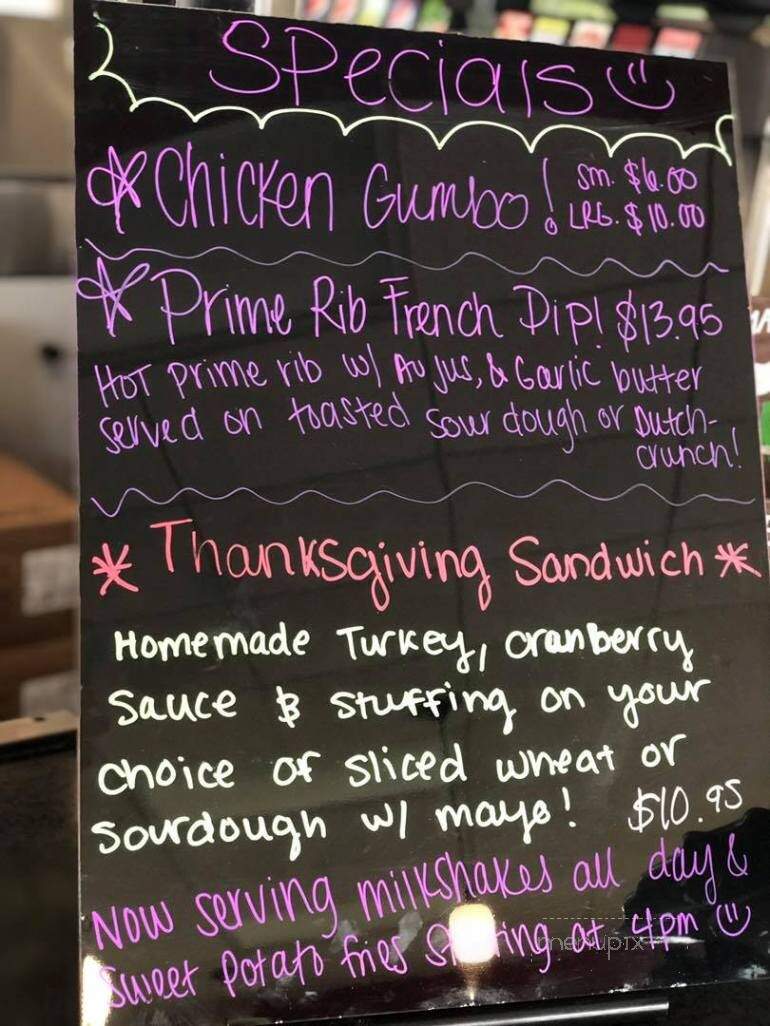 Specials
Chicken Gumbo! sm. $6.00
LRG. $10.00
Prime Rib French Dip! $13.95
Hot prime rib w/ Au jus, & Garlic butter
served on toasted sour dough or Dutch-
crunch!
Thanksgiving Sandwich
Homemade Turkey, cranberry
Sauce & stuffing on your
choice of sliced wheat or
sourdough w/ mayo! $10.95
Now serving milkshakes all day &
Sweet Potato fries starting at 4pm
menupix